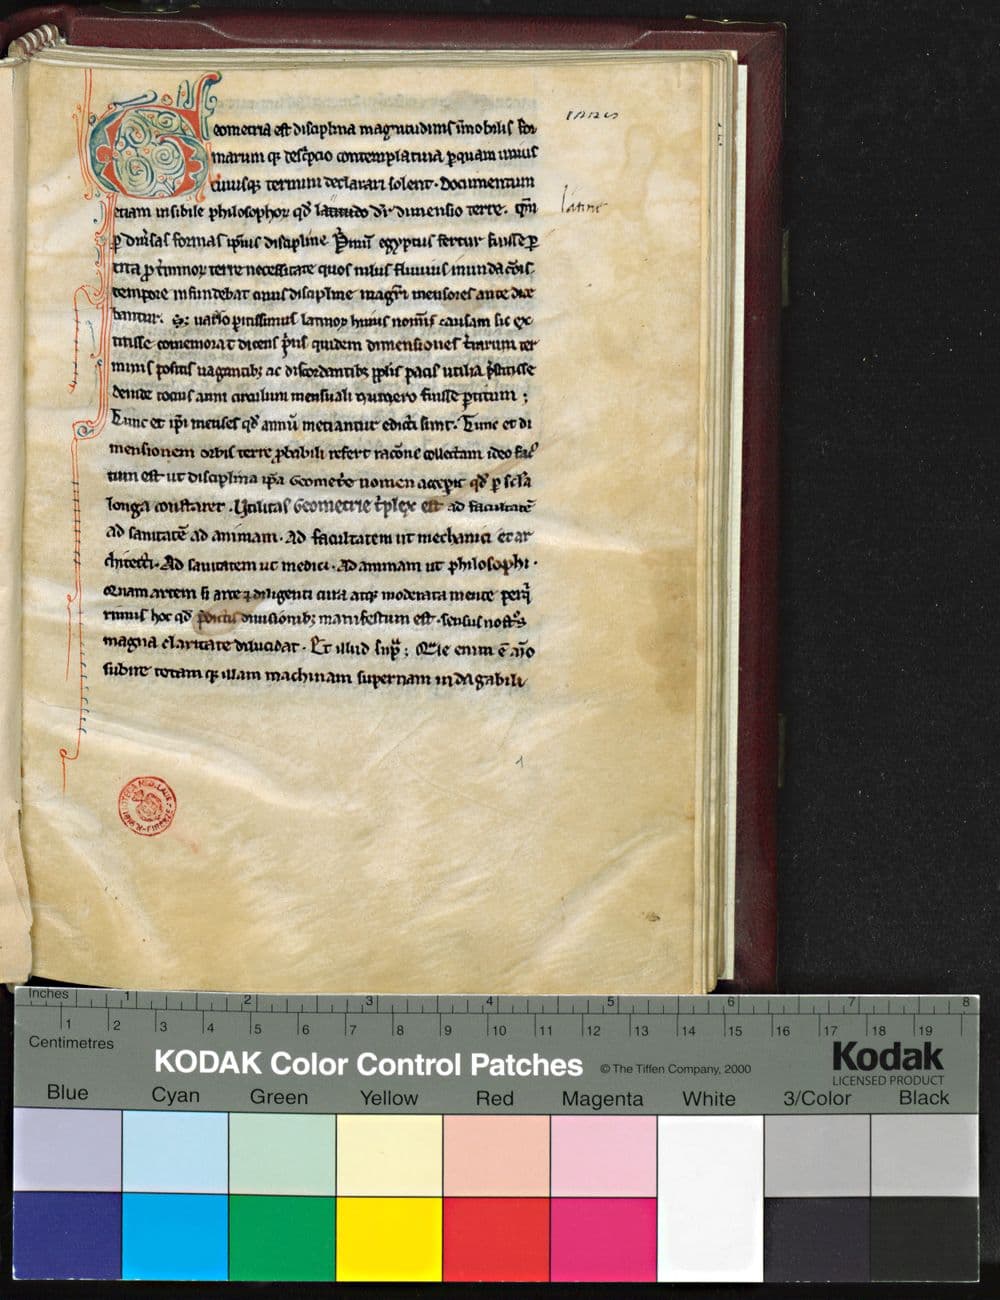 Geometria est disciplina magnitudinis īmobilis for
marum q; descp̄cio contemplatiua p quam unius
cuiusq; termini declarari solent. Documentum
etiam insibile philosophoꝝ qd̄ latitudo dr̄ dimensio terre. Qm̄
latine
p diuisas formas ip̄ius discipline. Primū egyptus fertur fuisse p
tita p t̄minoꝝ terre necessitate quos nilus fluuius inundac̄ois
tempore infundebat cuius discipline magr̄i mensores ante dice
bantur. S; uarro peritissimus latinoꝝ huius nom̄is causam sic ex
titisse comemorat dicens p̄us quidem dimensiones t̄rarum ter
minis positis uagantib; ac discordantib; pplis pacis utilia p̄stitisse
deinde totius anni circulum mensuali numero fuisse p̄titum ;
Tunc et ip̄i menses qd̄ annū metiantur edicti sunt. Tunc et di
mensionem orbis terre p̄babili refert rac̄one collectam ideo fac
tum est ut disciplina ip̄a Geometr̄e nomen acceperit qd̄ p sc̄la
longa constaret. Utilitas Geometrie t̄plex est ad facultatē
ad sanitatē ad animam. Ad facultatem ut mechanici et ar
chitecti. Ad sanitatem ut medici. Ad animam ut philosophi.
Quam artem si arte ⁊ diligenti cura atq; moderata mente perq̄
rimus hoc qd̄ p̄dictis diuisionib; manifestum est. sensus nost̄s
magna claritate dilucidat. Et illud sup̄; Q̄le enim ē aīo
subire totam q; illam machinam supernam indagabili
1
Inches 1 2 3 4 5 6 7 8
1 2 3 4 5 6 7 8 9 10 11 12 13 14 15 16 17 18 19
Centimetres
KODAK Color Control Patches © The Tiffen Company, 2000
Kodak
LICENSED PRODUCT
Blue Cyan Green Yellow Red Magenta White 3/Color Black